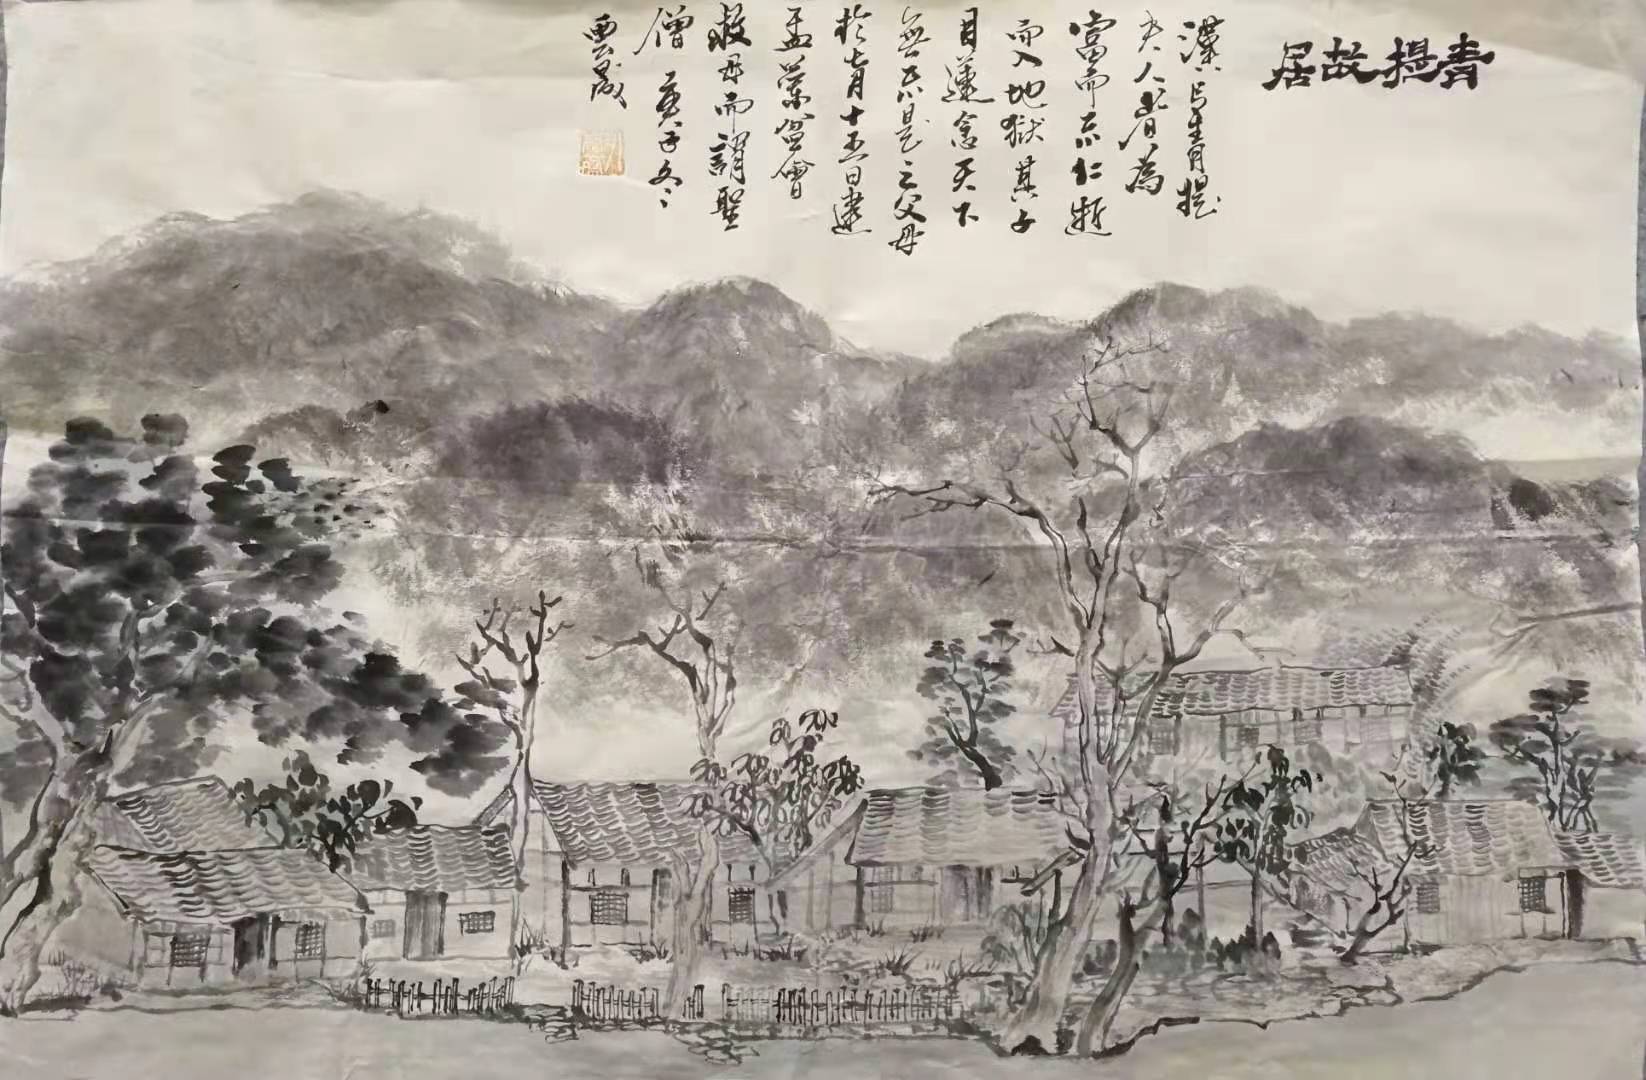 青提故居
漢青提
夫人為
富而不仁逝
而入地獄其子
目蓮念天下
無不是之父母
於七月十五日建
盂蘭盆會
救母而謂聖
僧 庚子冬
雲